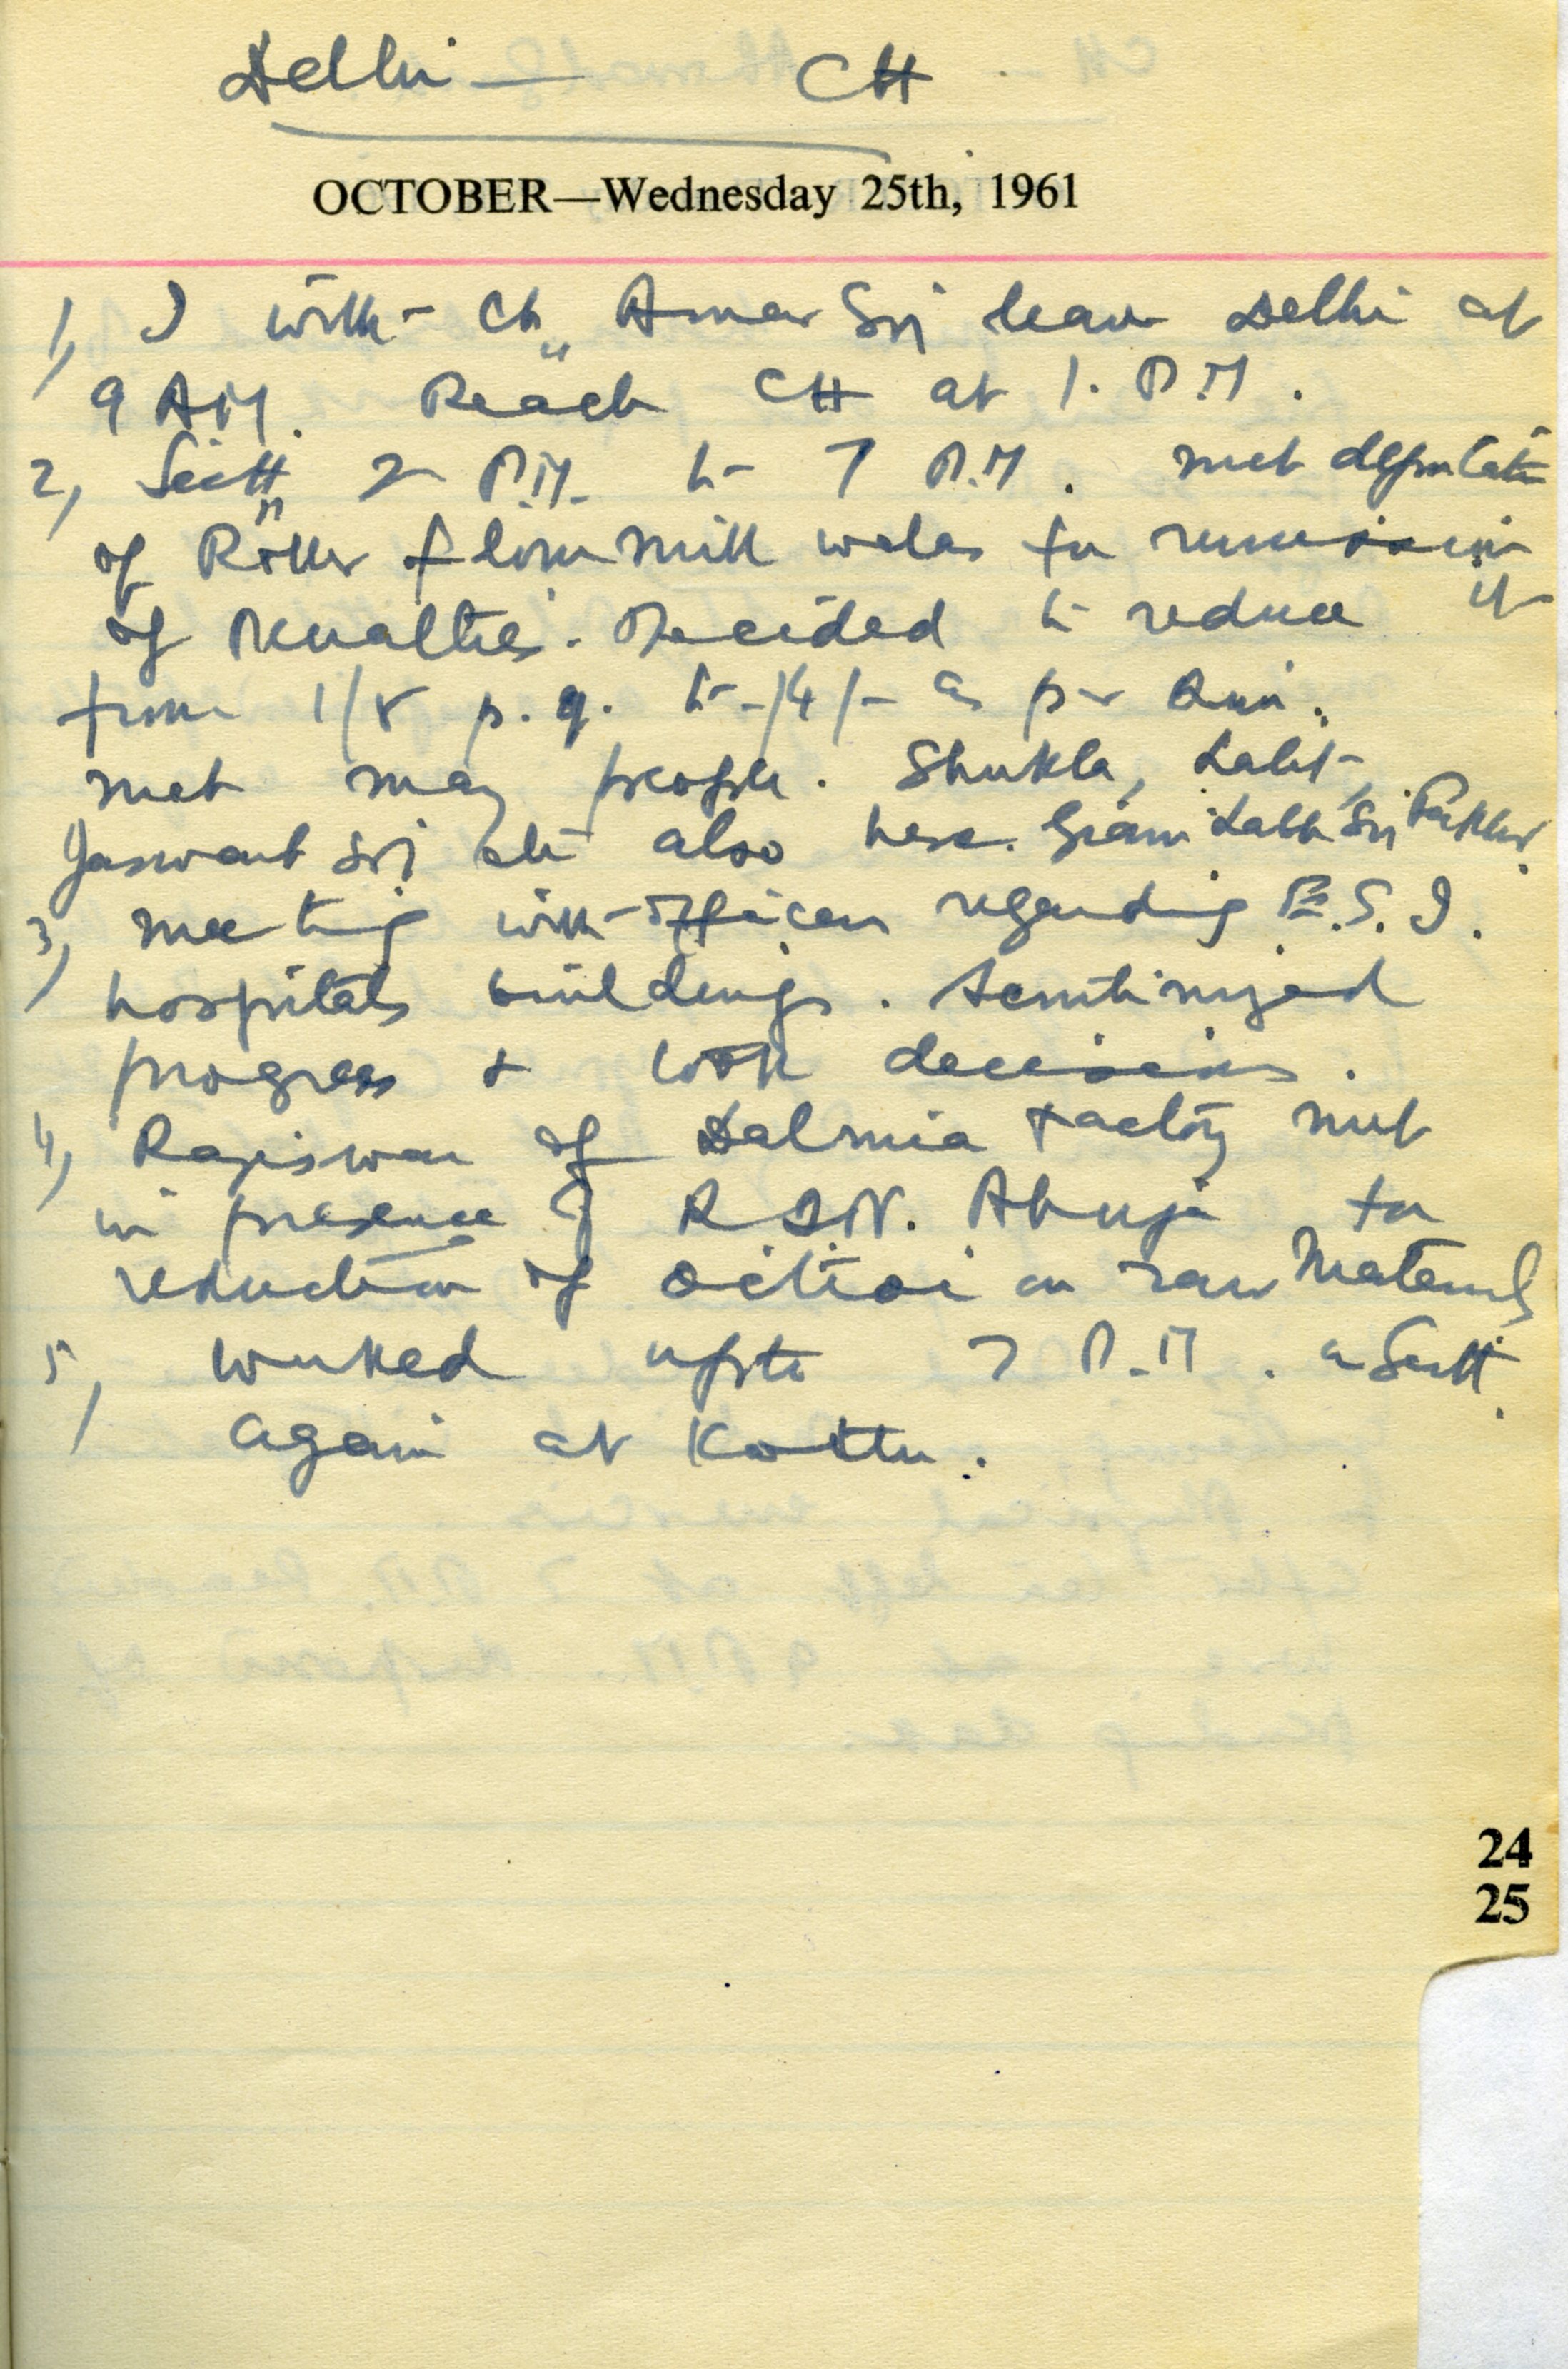 Delhi — CH
OCTOBER—Wednesday 25th, 1961
1, I with Ch. Amar Singh leave Delhi at
9 AM. Reach CH at 1. P.M.
2, Sectt 2 P.M. to 7 P.M. met deputation
of Roller flour Mill walas for remission
of penalties. Decided to reduce it
from 1/8 p.q. to -/4/- as per
met many people. Shukla, Lalit,
Jaswant Singh etc also here. Giani Labh Singh
3, meeting with officers regarding E.S.I.
hospitals buildings. Scrutinized
progress & took decisions.
4, of Dalmia Factory met
in presence of R S.N. Ahuja for
reduction of octroi on raw Materials
5, Worked upto 7 P.M. in Sectt.
again at Kothi.
24
25